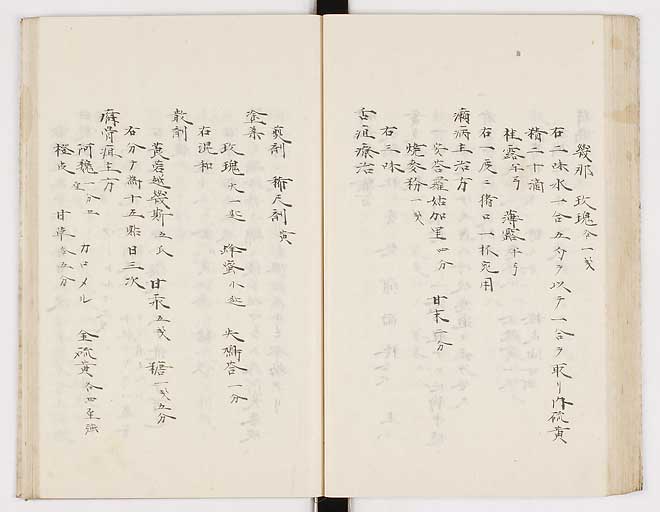 幾那 玫瑰各一戔
右二味水一合五勺ヲ以テ一合ヲ取リ内硫黄
精二十滴
桂露半弓 薄露半弓
右一度ニ猪口一杯宛用
痛病主治方
安答羅姑加里四分 甘末二分
焼麦粉一戔
右三味
舌疽療治
煎剤 稀尺剤黄
塗薬
玫瑰大一匕 蜂蜜小匕 大黹答一分
右混和
散剤
莨菪越幾斯五氏 甘汞五戔 糖一戔五分
右分テ為十五貼日三次
痹骨疽主方
阿魏一分 カロメル 金硫黄各四至強
橙皮 甘草各五分